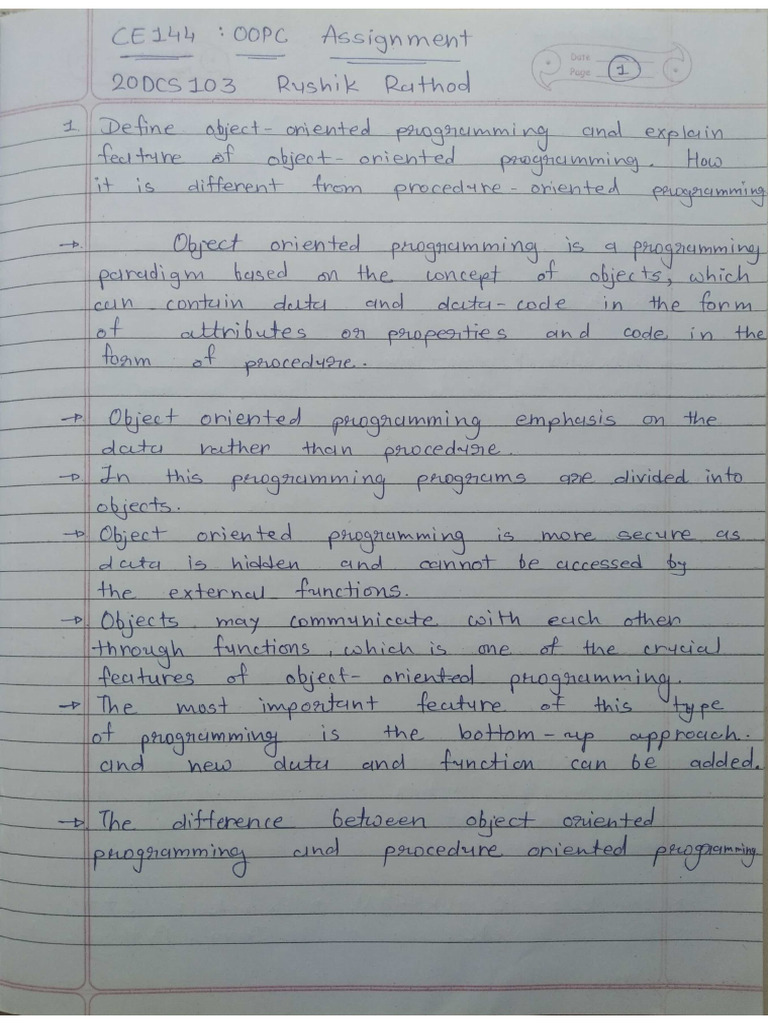 CE144 : OOPC Assignment
Date
Page 1
20DCS103 Rushik Rathod
1. Define object-oriented programming and explain
feature of object-oriented programming. How
it is different from procedure-oriented programming
→ Object oriented programming is a programming
paradigm based on the concept of objects, which
can contain data and data-code in the form
of attributes or properties and code in the
form of procedure.
→ Object oriented programming emphasis on the
data rather than procedure.
→ In this programming programs are divided into
objects.
→ Object oriented programming is more secure as
data is hidden and cannot be accessed by
the external functions.
→ Objects may communicate with each other
through functions, which is one of the crucial
features of object-oriented programming.
→ The most important feature of this type
of programming is the bottom-up approach.
and new data and function can be added.
→ The difference between object oriented
programming and procedure oriented programming